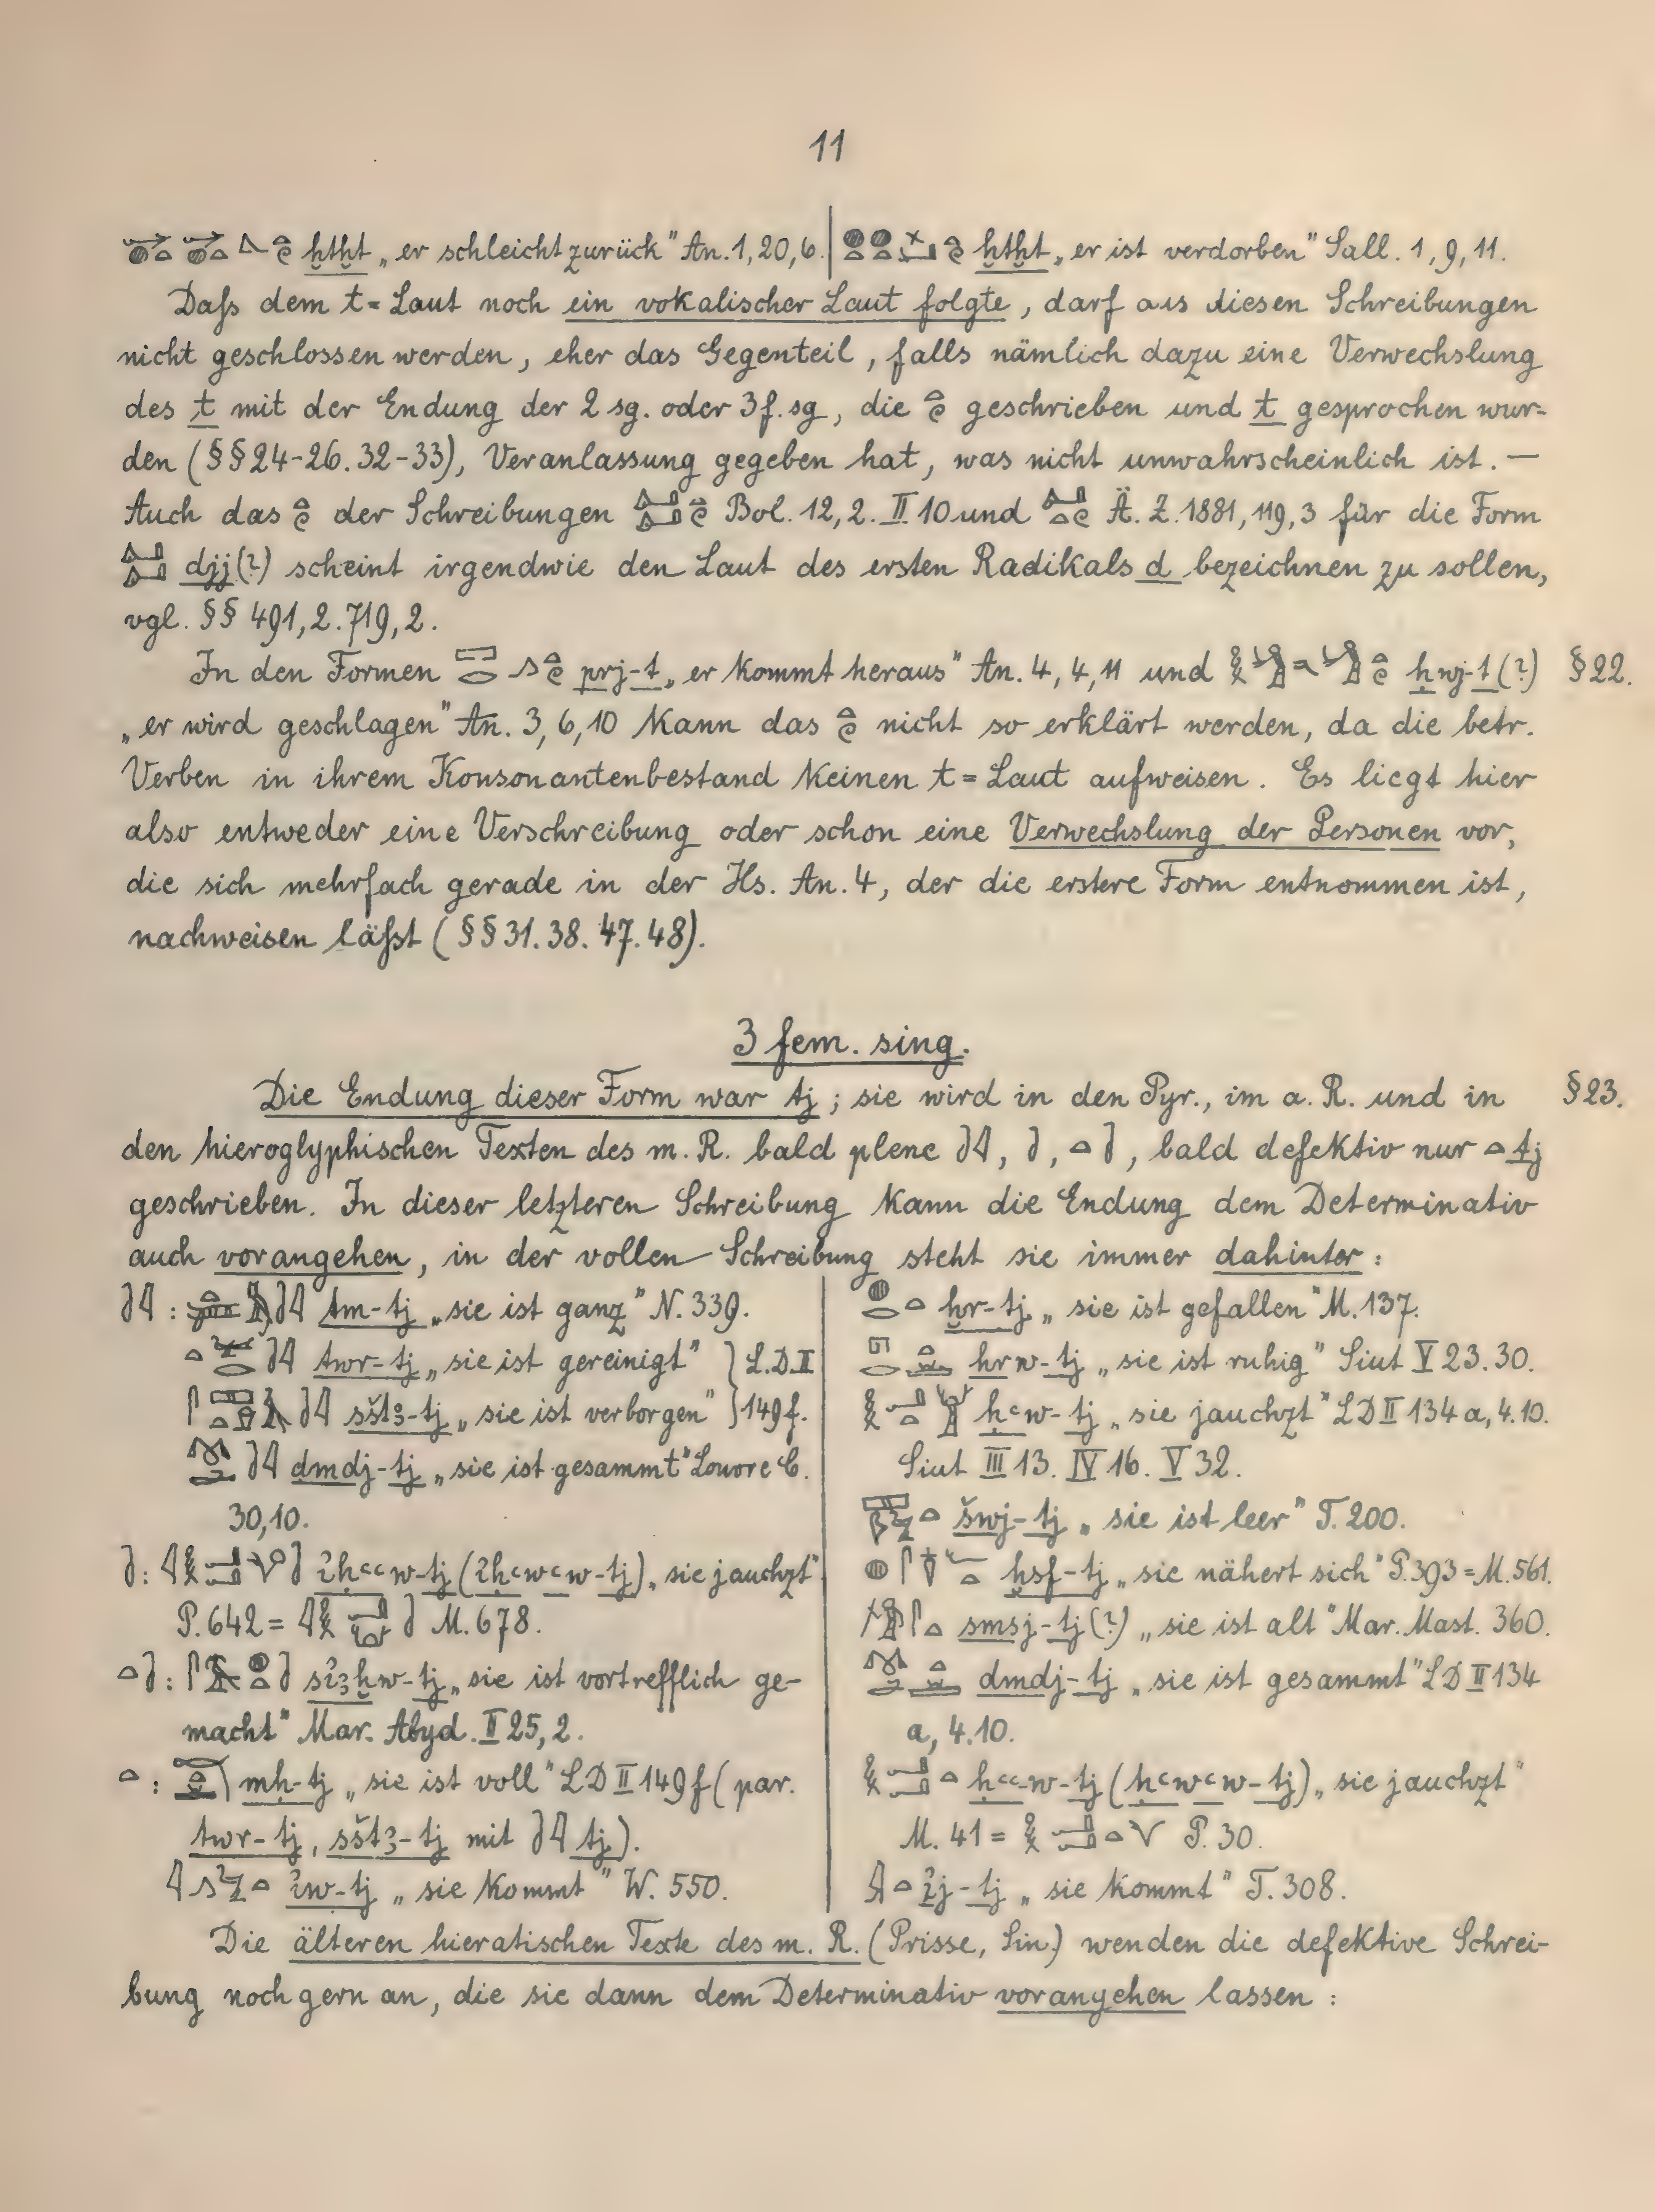 11
ḫtḫt „er schleicht zurück" An. 1, 20, 6.
ḫtḫt „er ist verdorben" Sall. 1, 9, 11.
Daſs dem t = Laut noch ein vokalischer Laut folgte, darf aus diesen Schreibungen
nicht geschlossen werden, eher das Gegenteil, falls nämlich dazu eine Verwechslung
des t mit der Endung der 2 sg. oder 3 f. sg, die geschrieben und t gesprochen wur=
den (§§ 24-26. 32-33), Veranlassung gegeben hat, was nicht unwahrscheinlich ist. —
Auch das der Schreibungen Bol. 12, 2. II 10 und Ä. Z. 1881, 119, 3 für die Form
djj(?) scheint irgendwie den Laut des ersten Radikals d bezeichnen zu sollen,
vgl. §§ 491, 2. 719, 2.
In den Formen prj-t „er kommt heraus" An. 4, 4, 11 und ḥwj-t(?) § 22.
„er wird geschlagen" An. 3, 6, 10 kann das nicht so erklärt werden, da die betr.
Verben in ihrem Konsonantenbestand keinen t = Laut aufweisen. Es liegt hier
also entweder eine Verschreibung oder schon eine Verwechslung der Personen vor,
die sich mehrfach gerade in der Hs. An. 4, der die erstere Form entnommen ist,
nachweisen läſst (§§ 31. 38. 47. 48).
3 fem. sing.
Die Endung dieser Form war tj; sie wird in den Pyr., im a. R. und in § 23.
den hieroglyphischen Texten des m. R. bald plene , , , bald defektiv nur tj
geschrieben. In dieser letzteren Schreibung kann die Endung dem Determinativ
auch vorangehen, in der vollen Schreibung steht sie immer dahinter:
: tm-tj „sie ist ganz" N. 339.
twr-tj „sie ist gereinigt" } L. D. II
sštꜣ-tj „sie ist verborgen" } 149 f.
dmdj-tj „sie ist gesammt" Louvre C.
30, 10.
: ꞽḥꜥꜥw-tj (ꞽḥꜥwꜥw-tj) „sie jauchzt"
P. 642 = M. 678.
: sꞽꜣḫw-tj „sie ist vortrefflich ge-
macht" Mar. Abyd. II 25, 2.
: mḥ-tj „sie ist voll" LD II 149 f (par.
twr-tj, sštꜣ-tj mit tj).
ꞽw-tj „sie kommt" W. 550.
ḫr-tj „sie ist gefallen" M. 137.
hrw-tj „sie ist ruhig" Siut V 23. 30.
ḥꜥw-tj „sie jauchzt" LD II 134 a, 4. 10.
Siut III 13. IV 16. V 32.
šwj-tj „sie ist leer" T. 200.
ḫsf-tj „sie nähert sich" P. 393 = M. 561.
smsj-tj(?) „sie ist alt" Mar. Mast. 360.
dmdj-tj „sie ist gesammt" LD II 134
a, 4. 10.
ḥꜥꜥw-tj (ḥꜥwꜥw-tj) „sie jauchzt"
M. 41 = P. 30.
ꞽj-tj „sie kommt" T. 308.
Die älteren hieratischen Texte des m. R. (Prisse, Sin.) wenden die defektive Schrei-
bung noch gern an, die sie dann dem Determinativ vorangehen lassen: